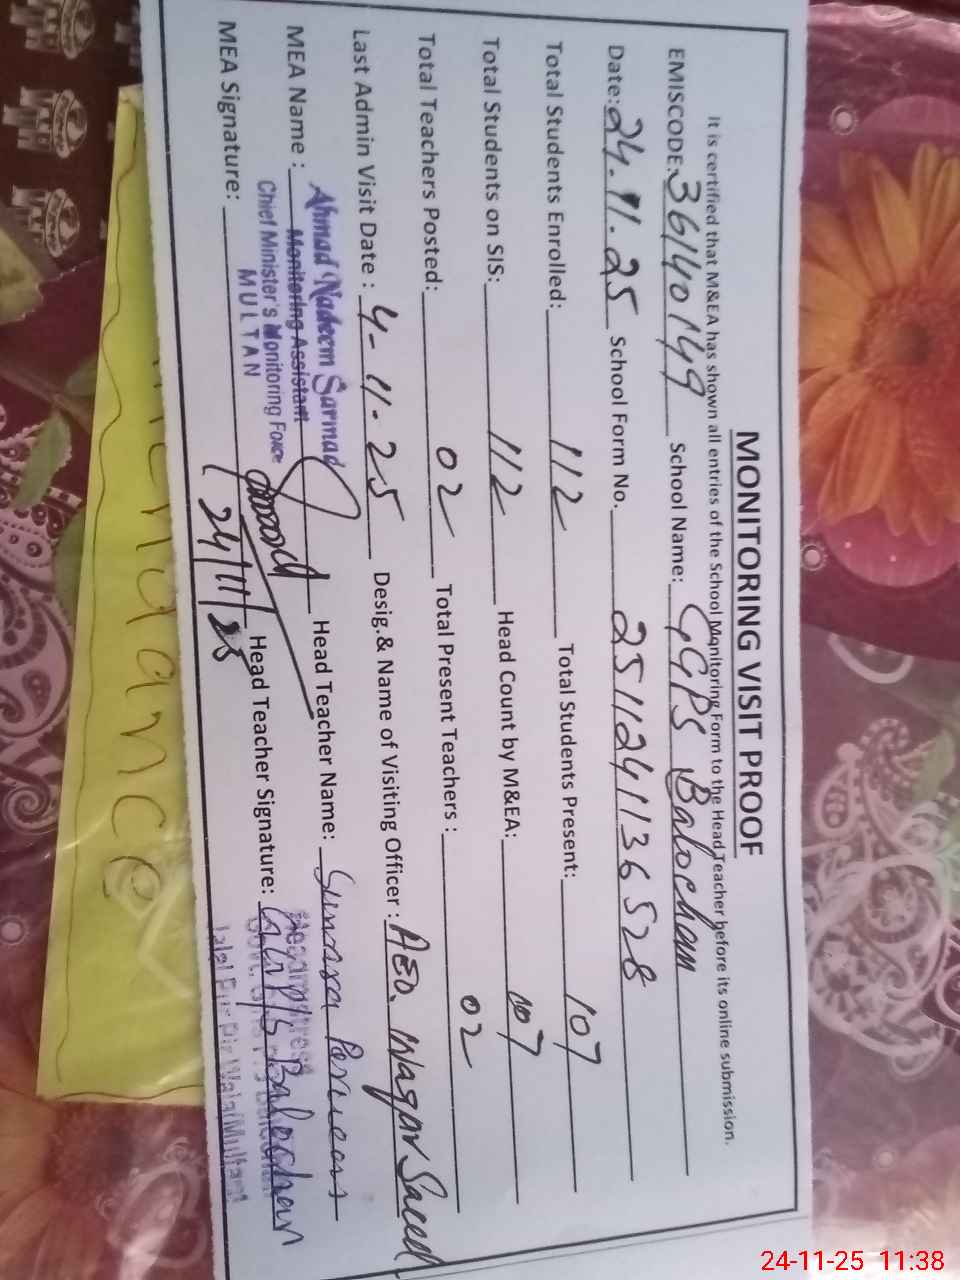 MONITORING VISIT PROOF
It is certified that M&EA has shown all entries of the School Monitoring Form to the Head Teacher before its online submission.
EMISCODE: 36140149 School Name: GGPS Balochan
Date: 24.11.25 School Form No. 2511241136528
Total Students Enrolled: 112 Total Students Present: 107
Total Students on SIS: 112 Head Count by M&EA: 107
Total Teachers Posted: 02 Total Present Teachers: 02
Last Admin Visit Date: 4-11-25 Desig.& Name of Visiting Officer: AEO. Waqar Saeed
MEA Name: Ahmad Nadeem Sarmad Head Teacher Name:
Monitoring Assistant
Chief Minister's Monitoring Force
MULTAN
MEA Signature: 24/11/25 Head Teacher Signature: Balochan
24-11-25 11:38